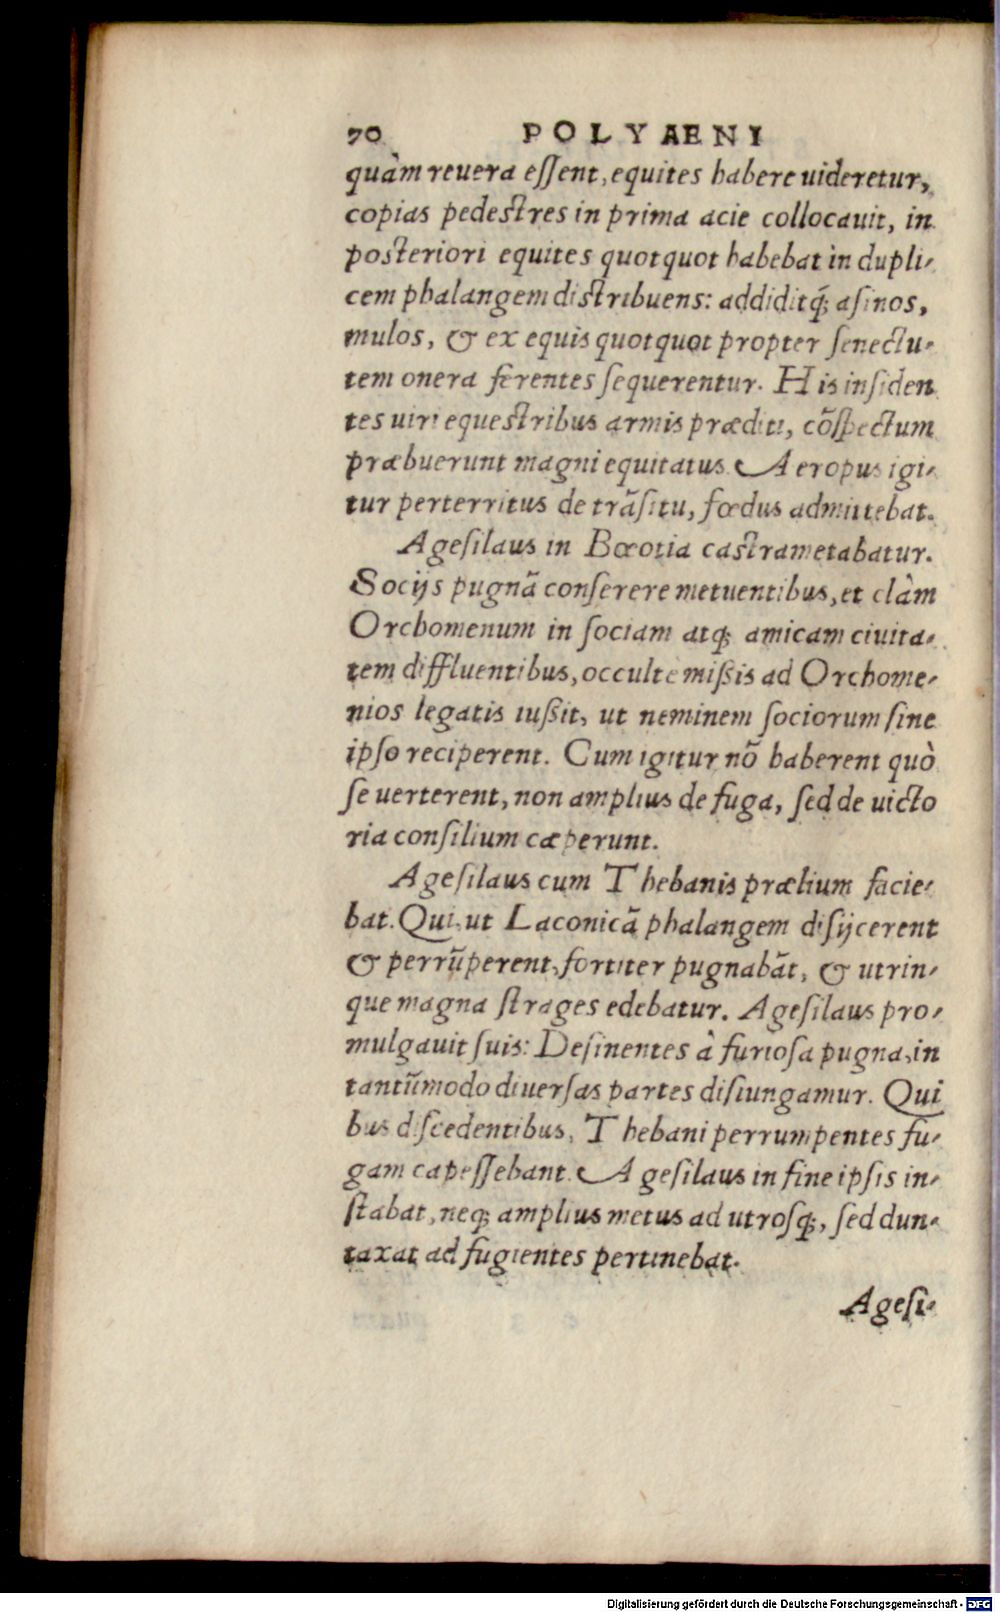 70 POLYAENI
quàm reuera eſſent, equites habere uideretur,
copias pedestres in prima acie collocauit, in
posteriori equites quotquot habebat in dupli-
cem phalangem distribuens: addiditq́; asinos,
mulos, & ex equis quotquot propter ſenectu-
tem onera ferentes ſequerentur. His inſiden
tes uiri equestribus armis præditi, cõſpectum
præbuerunt magni equitatus. Aeropus igi-
tur perterritus de trãſitu, fœdus admittebat.
Ageſilaus in Bœotia castrametabatur.
Socijs pugnã conſerere metuentibus, et clàm
Orchomenum in ſociam atq; amicam ciuita-
tem diffluentibus, occulte mißis ad Orchome-
nios legatis iußit, ut neminem ſociorum ſine
ipſo reciperent. Cum igitur nõ haberent quò
ſe uerterent, non amplius de fuga, ſed de uicto
ria conſilium cæperunt.
Ageſilaus cum Thebanis prælium facie-
bat. Qui, ut Laconicã phalangem diſijcerent
& perrũperent, fortiter pugnabãt, & utrin-
que magna ſtrages edebatur. Ageſilaus pro-
mulgauit ſuis: Deſinentes à furioſa pugna, in
tantũmodo diuerſas partes diſiungamur. Qui
bus diſcedentibus, Thebani perrumpentes fu-
gam capeſſebant. Ageſilaus in fine ipſis in-
ſtabat, neq; amplius metus ad utroſq;, ſed dun-
taxat ad fugientes pertinebat.
Ageſi-
Digitalisierung gefördert durch die Deutsche Forschungsgemeinschaft - DFG